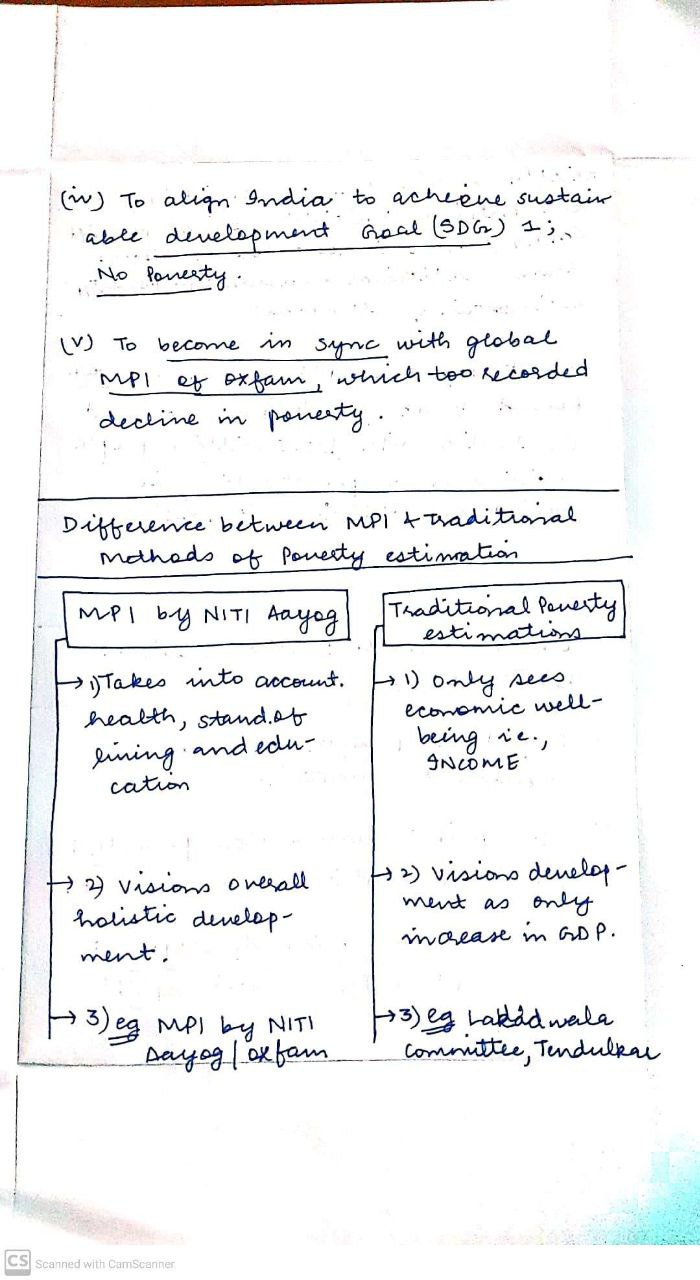 (iv) To align India to achieve sustain
able development Goal (SDG) 1;
No Poverty.
(v) To become in sync with global
MPI of oxfam, which too recorded
decline in poverty.
Difference between MPI & Traditional
Methods of Poverty estimation
MPI by NITI Aayog
→ 1) Takes into account.
health, stand. of
living and edu-
cation
→ 2) Visions overall
holistic develop-
ment.
→ 3) eg MPI by NITI
Aayog / oxfam
Traditional Poverty
estimations
→ 1) Only sees
economic well-
being i.e.,
INCOME
→ 2) Visions develop-
ment as only
increase in GDP.
→ 3) eg Lakdawala
Committee, Tendulkar
CS Scanned with CamScanner